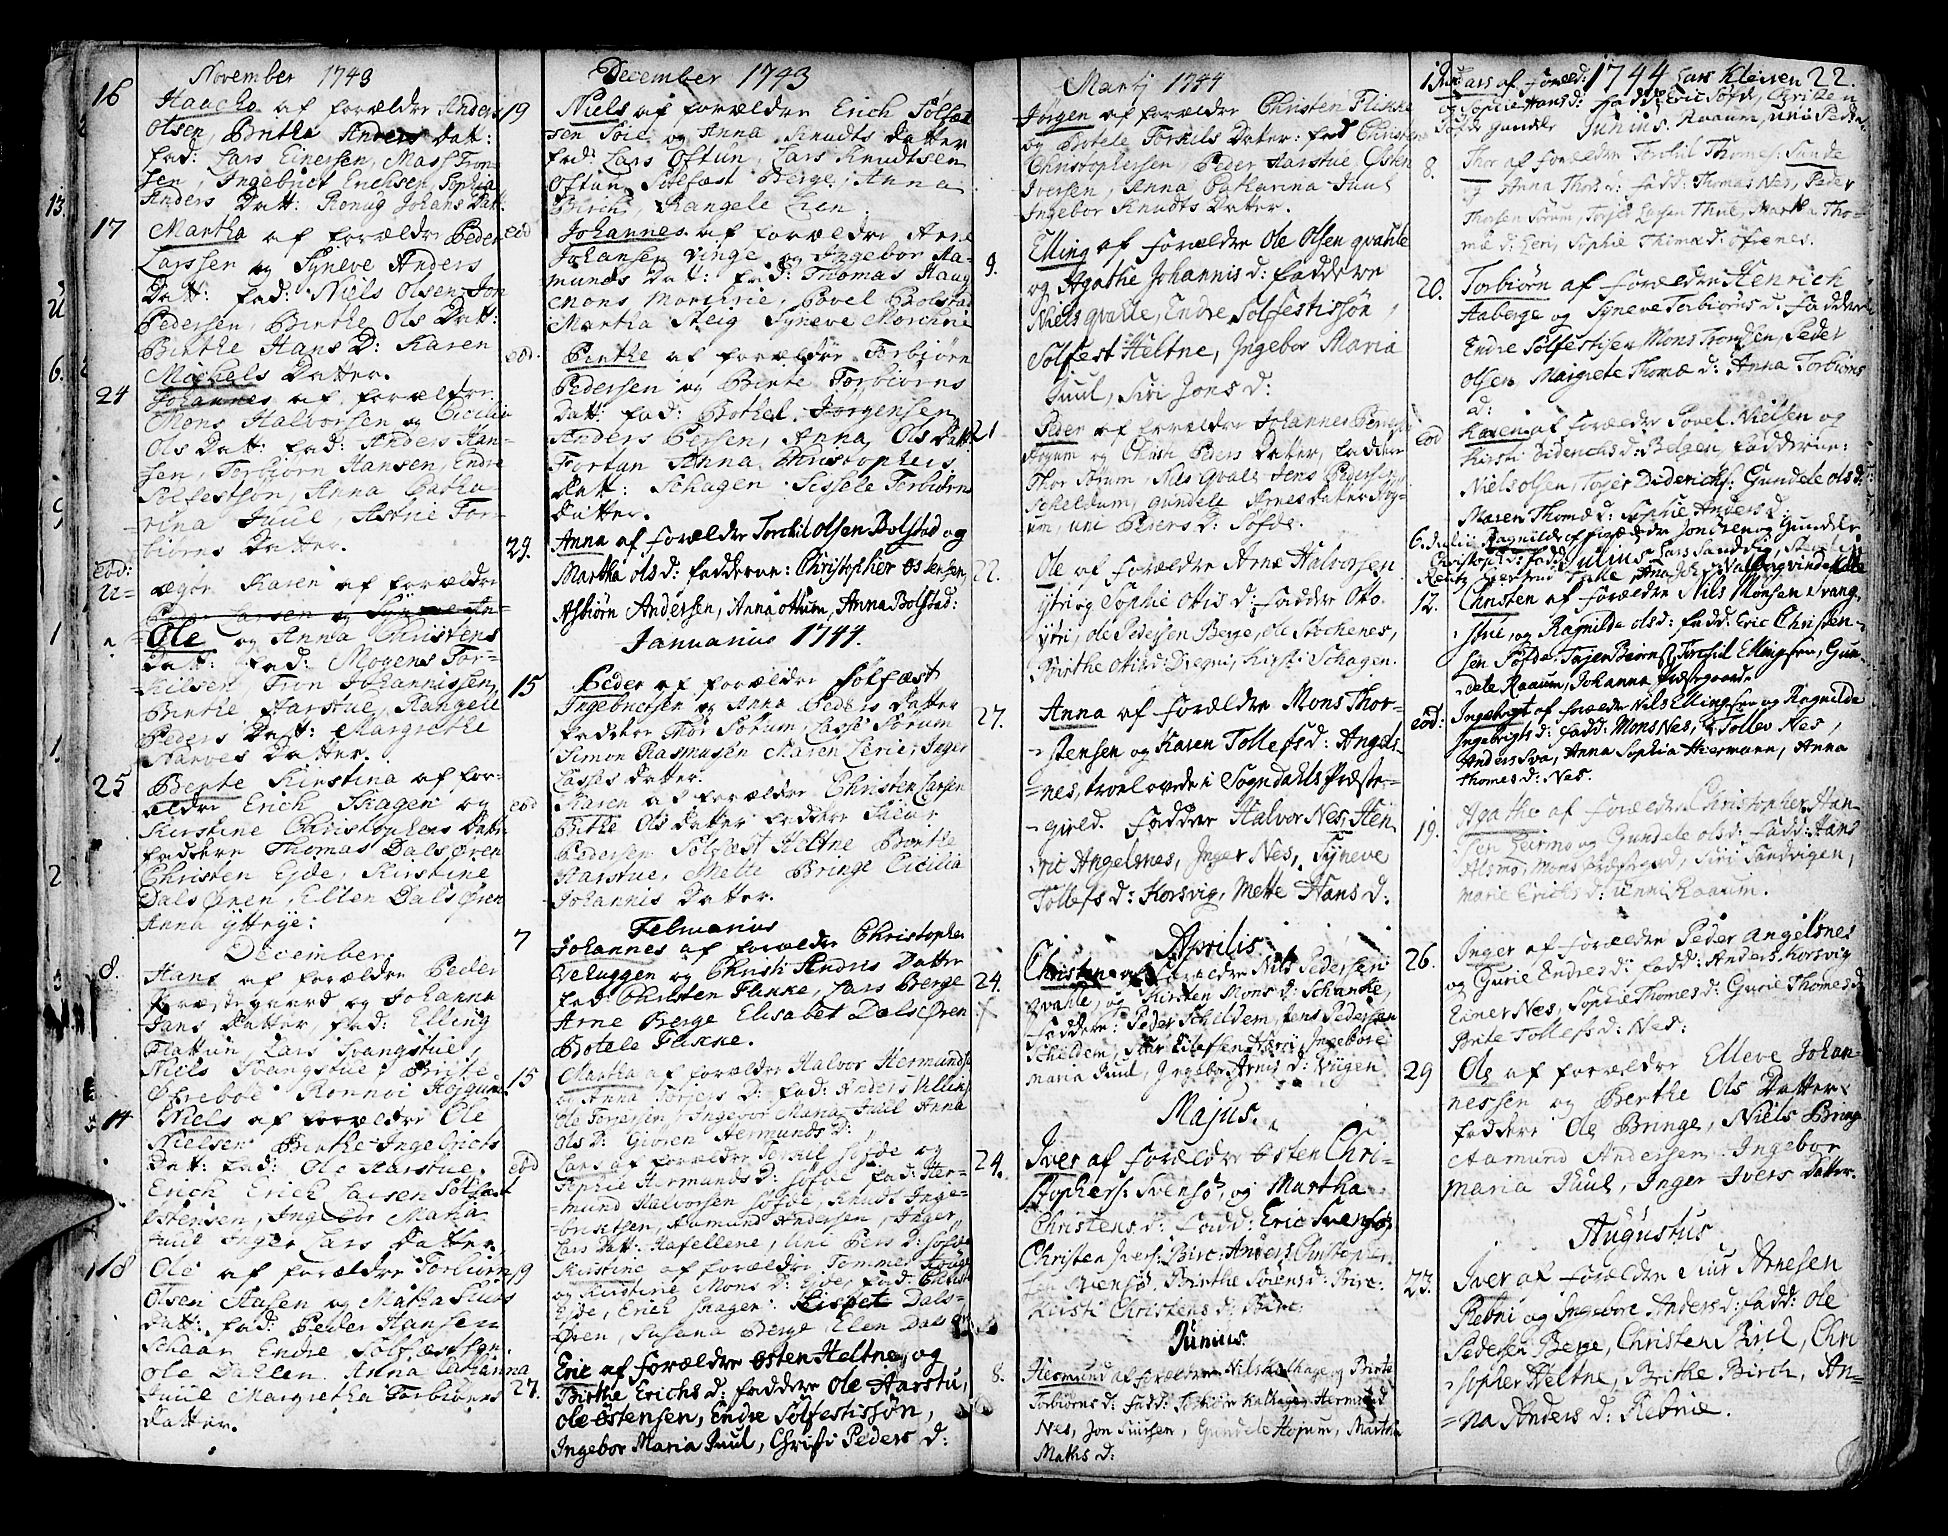 November 1743
16 Haacho af forældre Anders
Olsen, Brithe Anders Datt:
fad: Lars Einersen, Mass Tron-
sen, Ingebrict Erichsen, Sophia
Anders Datt: Ronug Johans Datt.
17 Martha af forældre Peder
Larssen og Syneve Anders
Datt: fad: Niels Olsen, Jon
Pedersen, Birthe Ols Datt:
Birthe Hans D: Karen
Mochels Datter.
24 Johannes af forældre
Mons Halvorsen og Cicilia
Ols Datt: fad: Anders Han-
sen, Torbiørn Hansen, Endre
Solfestsøn, Anna Catha-
rina Juul, Astrie Tor-
biørns Datter.
eod: ægte Karen af forældre
Peder Larsen og Syneve An-
Ole og Anna Christens
Datt: fad: Mogens Tor-
kilsen, Tron Johannissen,
Birthe Aarstue, Rangele
Peders Datt: Margrethe
Datter.
25 Berte Kirstina af for-
ældre Erich Skagen og
Kirstine Christophers Datt:
faddere Thomas Dalsøren
Christen Eyde, Kirstine
Dalsøren, Ellen Dalsøren
Anna ÿttrÿe:
December
8. Hans af forældre Peder
Præstegaard og Johanna
Jans Datter, fad: Elling
Flattun, Lars Svangstue,
Niels Svangstue, Brite
Øfrebøe Ronnoi
14 Niels af forældre Ole
Nielsen Birthe Ingebricts
Datt: fad: Ole Aarstue.
Erich Erich Larsen Solfæst
Østensen, Ingebor Maria
Juul Inger Lars Datter.
18 Ole af forældre Torbiørn
Olsen Aasen og Martha Siurs
Datt: fad: Peder Hansen
Schaar Endre Solfestsøn.
Ole Dahlen Anna Catharina
Juul Margretha Torbiørns
Datter.
December 1743
19 Niels af forældre Erich Solfæst
sen Soil og Anna Knudts Datter
fad: Lars Oftun, Lars Knudtsen
Oftun Solfæst Berge Anna
Birch, Rangele Lien.
eod Johannes af forældre Arne
Johansen Vinge og Ingebor Aa-
munds Datt: fad: Thomas Haug
Mons Morchrie, Povel Bolstad
Martha Steig Syneve Morchrie
eod. Birthe af forældre Torbiørn
Pedersen og Birte Torbiørns
Datt: fad: Bothel Jørgensen
Anders Persen, Anna Ols Datt:
Fortun Anna Christophers
Datt: Schagen Sissele Torbiørns
Datter.
29. Anna af forældre Torchil Olsen Bolstad og
Martha ols d: fadderne: Christopher Østensen,
Asbiørn Andersen, Anna Ottum, Anna Bolstad:
Januarius 1744.
15 Peder af forældre Solfæst
Ingebrictsen og Anna Peders Datter
faddere Thor Sørum Lasse Sørum
Simon Rasmusen Maren Inger
Lasses Datter.
eod Karen af forældre Christen Larsen
Birthe Ols Datter faddere
Pedersen Solfæst Heltne Birthe
Aarstue, Mette Bringe Cicilia
Johannis Datter.
Februarius
7 Johannes af forældre Christopher
Veluggen og Christi Andris Datter
fad: Christen Flikke, Lars Berge
Arne Berge Elisabet Dalsøren
Botele Flikke.
15 Martha af forældre Halvor Hermunds
og Anna Torjers D: fad: Anders
Ole Torgersen, Ingebor Maria Juul Anna
Ols D: Giøren Hermunds D:
eod Lars af forældre Torkil Søfde og
Sophie Hermunds D: Søfde fad: Her-
mund Halvorsen Søfde Knud Inge-
brictsen, Aamund Andersen, Inger
Lars Datt: Hafellene, Uni Pers D: Søfde
19 Kirstine af forældre Tommes
og Kirstine Mons D: Eyde, fad: Christ
Eyde, Erich Skagen Lispet Dals-
Øren, Susana Berge Elen Dals
27. Eric af forældre Østen Heltne, og
Birthe Erichs d: faddere Ole Aarstu,
Ole Østensen, Endre Sølfestissøn,
Ingebor Maria Juul, Christi Peders d:
Martj 1744
Jørgen af forældre Christen Flikke
og Botele Torkils Dater: fad Christen
Christophersen Peder Aarstue Østen
Iversen, Anna Catharina Juul
Ingebor Knudts Datter.
9. Elling af forældre Ole Olsen qvahle
og Agathe Johannis d: faddere
Niels qvahle, Endre Sølfestissøn,
Solfest Heltne, Ingebor Maria
Juul, Siri Jons d:
21 Peder af forældre Johannes
og Christi Peders Datter, faddere
Thor Sørum, Nils Qvale, Jens Pedersen
Scheldum, Gundele
um, uni Peders d: Søfde.
22. Ole af forældre Arne Halvorsen
ÿtri og Sophie Ottis d: fadder Oto
ÿtri, Ole Pedersen Berge, Ole Støchenes,
Birthe Ottis d: Kirsti Schagen.
27. Anna af forældre Mons Thor-
stensen og Karen Tollefs d: Angels-
nes, troelovede i Sogndahls Præste-
gield. fadder Halvor Nes, Hen-
ric Angelsnes, Inger Nes, Syneve
Tollefs d: Korsvig, Mette Hans d:
Aprilis
24. Christen af forældre Nils Pedersen
Qvahle, og Kirsten Mons d: Schanke,
faddere: Peder Schildem, Jens Pedersen
Scheldem, Siur Ellefsen Ingebore
maria Juul, Ingebor Arnis d:
Majus.
24. Iver af forældre Østen Chri-
stophers: Svensø, og Martha
Christens d: fadd: Eric Svensø,
Christen Ivers: Birc, Anders Christopher-
sen Svensø, Birthe Sørens d:
Kirsti Christens d: Birc:
Junius
8. Hermund af forældre Nils Kalhage og Birte
Torbiørns d: fadd: Torbiørn Kalhage, Hermund
Nes, Jon Siursen, Gundele Høium, Martha
Maths d:
Lars af foræld: 1744 Lars Kleiven 22.
og Sophie Hans d: fadd: Eric Søfde, Christen
Søfde Gundele Junius. Raaum, uni Peders d:
8. Thor af forældre Torchil Thomes: Sunde
og Anna Thors d: fadd: Thomas Nes, Peder
Thorsen Sørum, Torjer Larsen Thue, Martha Tho-
mæ d: Lien, Sophie Thomæ d: Øfrenes.
20. Torbiørn af forældre Henrich
Aaberge og Syneve Torbiørns d: faddere
Endre Sølfestisen Mons Trondsen, Peder
Olsen Margrete Thomæ d: Anna Torbiørns
d:
eod Karen af forældre Povel Nielsen og
Kirsti Didrichs d: Bolgen, fadderne:
Niels Olsen, Torjer Diderichs: Gundele Ols d:
Maren Thomæ d: Sophie Anders d:
6. Julii Ragnilde af forældre Jondsen og Gundele
Christophd: fadd:
Julius
12. Christen af forældre Nils Monsen Svang-
stue, og Ragnilda Ols d: fadd: Eric Christen-
sen Søfde, Torjer Torchil Ellingsen, Gun-
dele Raaum, Johanna Præstegaard.
eod: Ingebrigt af forældre Nils Ellingsen og Ragnilde
Ingebrigts d: fadd: Mons Nes, Tollev Nes,
Anders Sva, Anna Sophia Hiermann, Anna
Thomes d: Nes.
19. Agathe af forældre Christopher Han-
sen og Gundele Ols d: fadd: Hans
Alsmo, Mons Præstegrd, Siri Sandvigen,
Marie Erichs d: unni Raaum.
26. Inger af forældre Peder Angelsnes
og Gurie Endres d: fadd: Anders Korsvig
Einer Nes, Sophie Thomes d: Gurie Thomes d
Brite Tollefs d: Nes:
29 Ole af forældre Elleve Johan-
nessen og Berthe Ols Datter
faddere Ole Bringe, Niels Bringe
Aamund Andersen Ingebor
Maria Juul, Inger Ivers Datter.
Augustus
23. Iver af forældre Siur Arnesen
Rebni og Ingebore Anders d: fadd: Ole
Pedersen Berge, Christen Birch, Chri
stopher Heltne, Brithe Birch, An-
na Anders d: Rebnie.